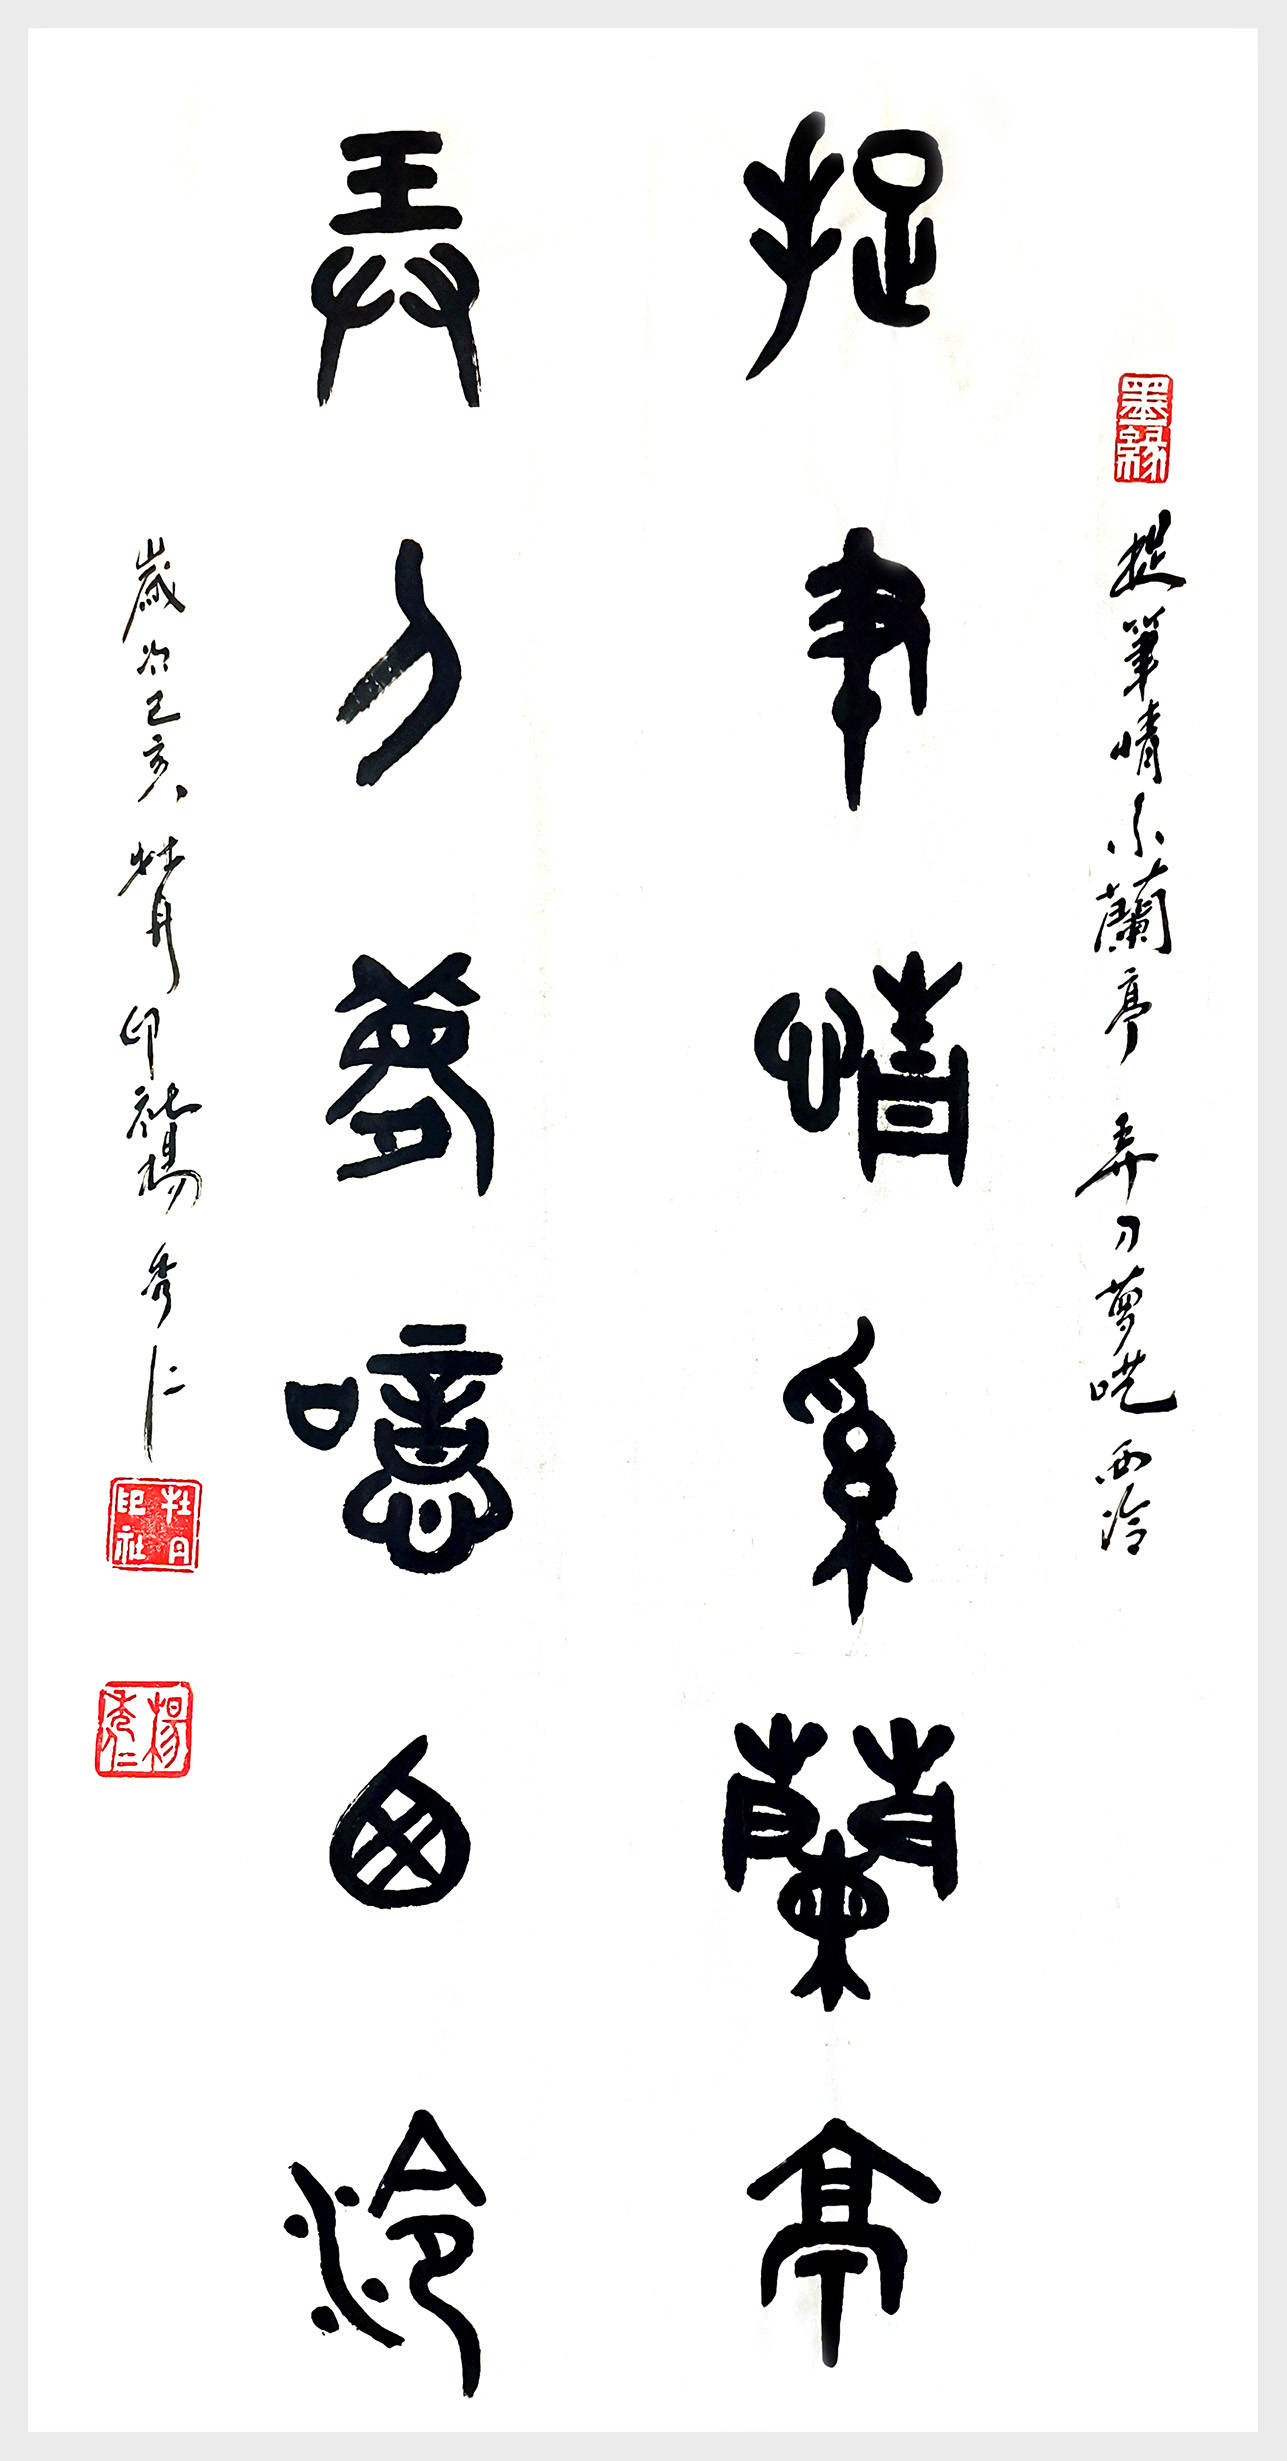 墨緣
捉筆情系蘭亭 弄刀夢呓西泠
捉筆情系蘭亭
弄刀夢噫西泠
歲次己亥 牡丹印社楊秀仁
牡丹印社
楊秀仁